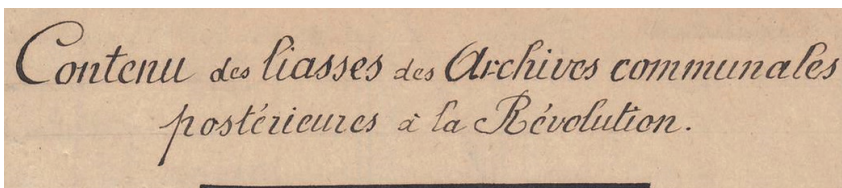 Contenu des liasses des Archives communales
postérieures à la Révolution.